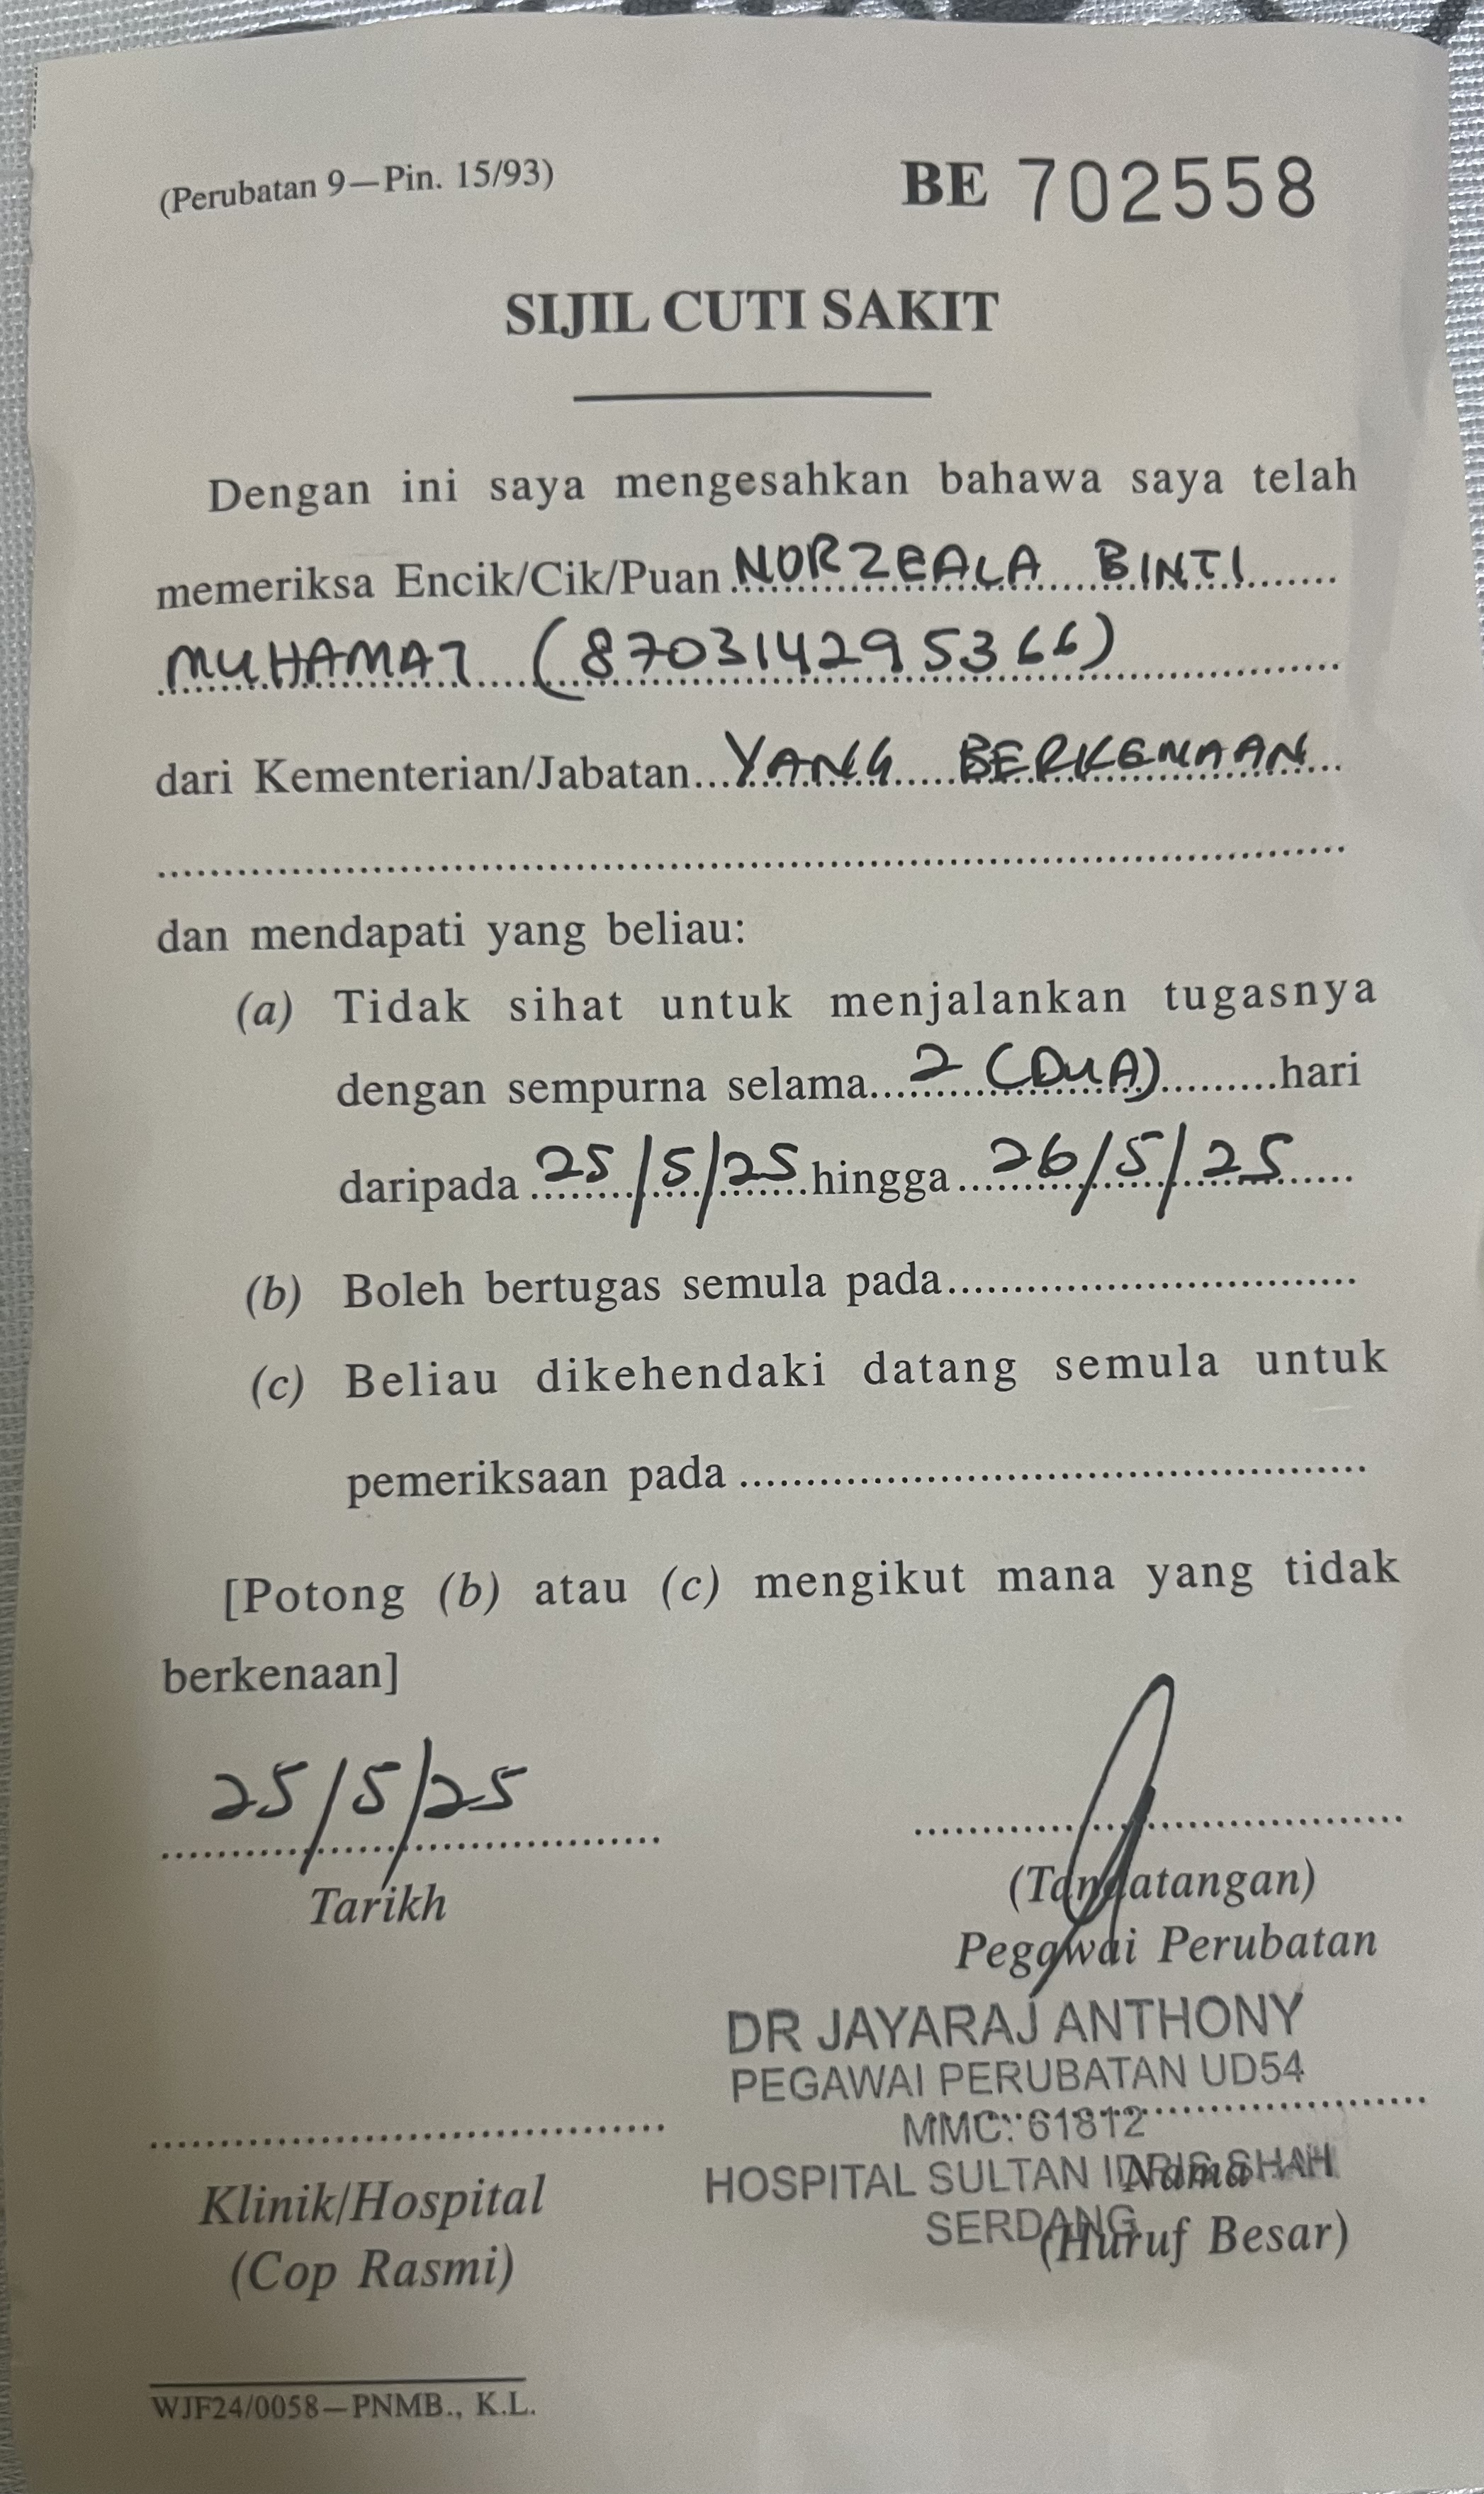 (Perubatan 9—Pin. 15/93)
BE 702558
SIJIL CUTI SAKIT
Dengan ini saya mengesahkan bahawa saya telah
memeriksa Encik/Cik/Puan NORZEALA BINTI
MUHAMAT (870314295366)
dari Kementerian/Jabatan YANG BERKENAAN
dan mendapati yang beliau:
(a) Tidak sihat untuk menjalankan tugasnya
dengan sempurna selama 2 (DUA) hari
daripada 25/5/25 hingga 26/5/25
(b) Boleh bertugas semula pada
(c) Beliau dikehendaki datang semula untuk
pemeriksaan pada
[Potong (b) atau (c) mengikut mana yang tidak
berkenaan]
25/5/25
Tarikh
(Tandatangan)
Pegawai Perubatan
DR JAYARAJ ANTHONY
PEGAWAI PERUBATAN UD54
MMC: 61812
HOSPITAL SULTAN IDRIS SHAH
SERDANG
Nama
(Huruf Besar)
Klinik/Hospital
(Cop Rasmi)
WJF24/0058—PNMB., K.L.